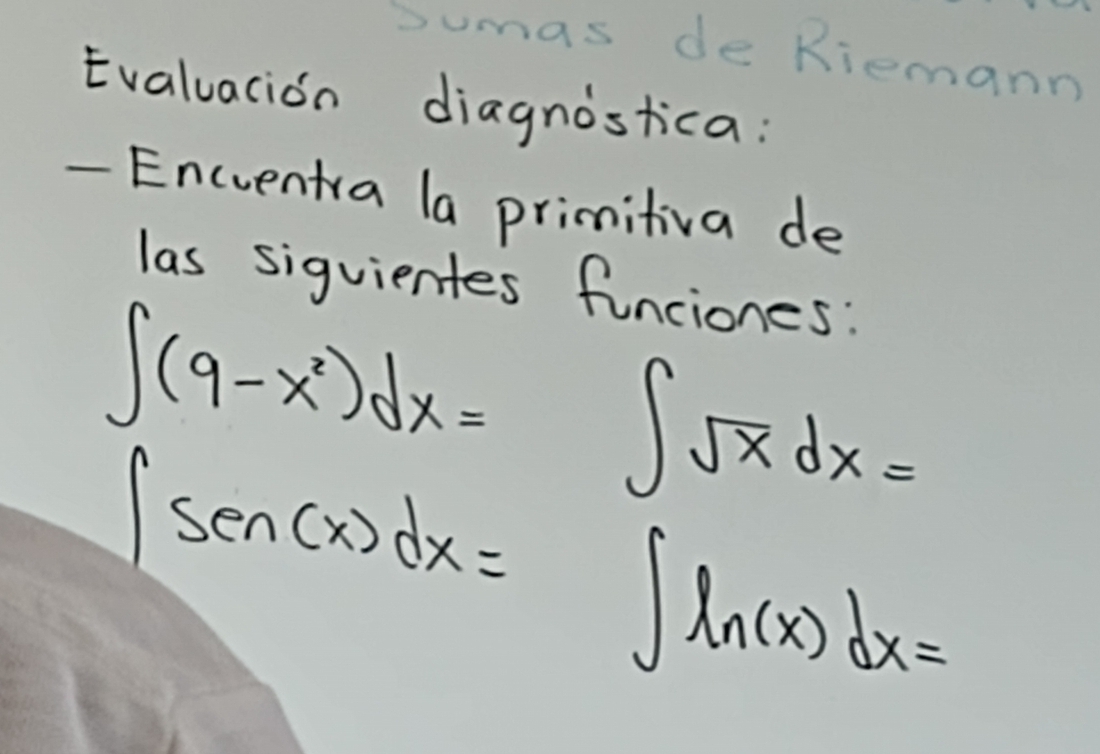 Sumas de Riemann
Evaluación diagnóstica:
- Encuentra la primitiva de
las siguientes funciones:
∫(9-x²)dx=
∫√x dx=
∫sen(x)dx=
∫ln(x)dx=